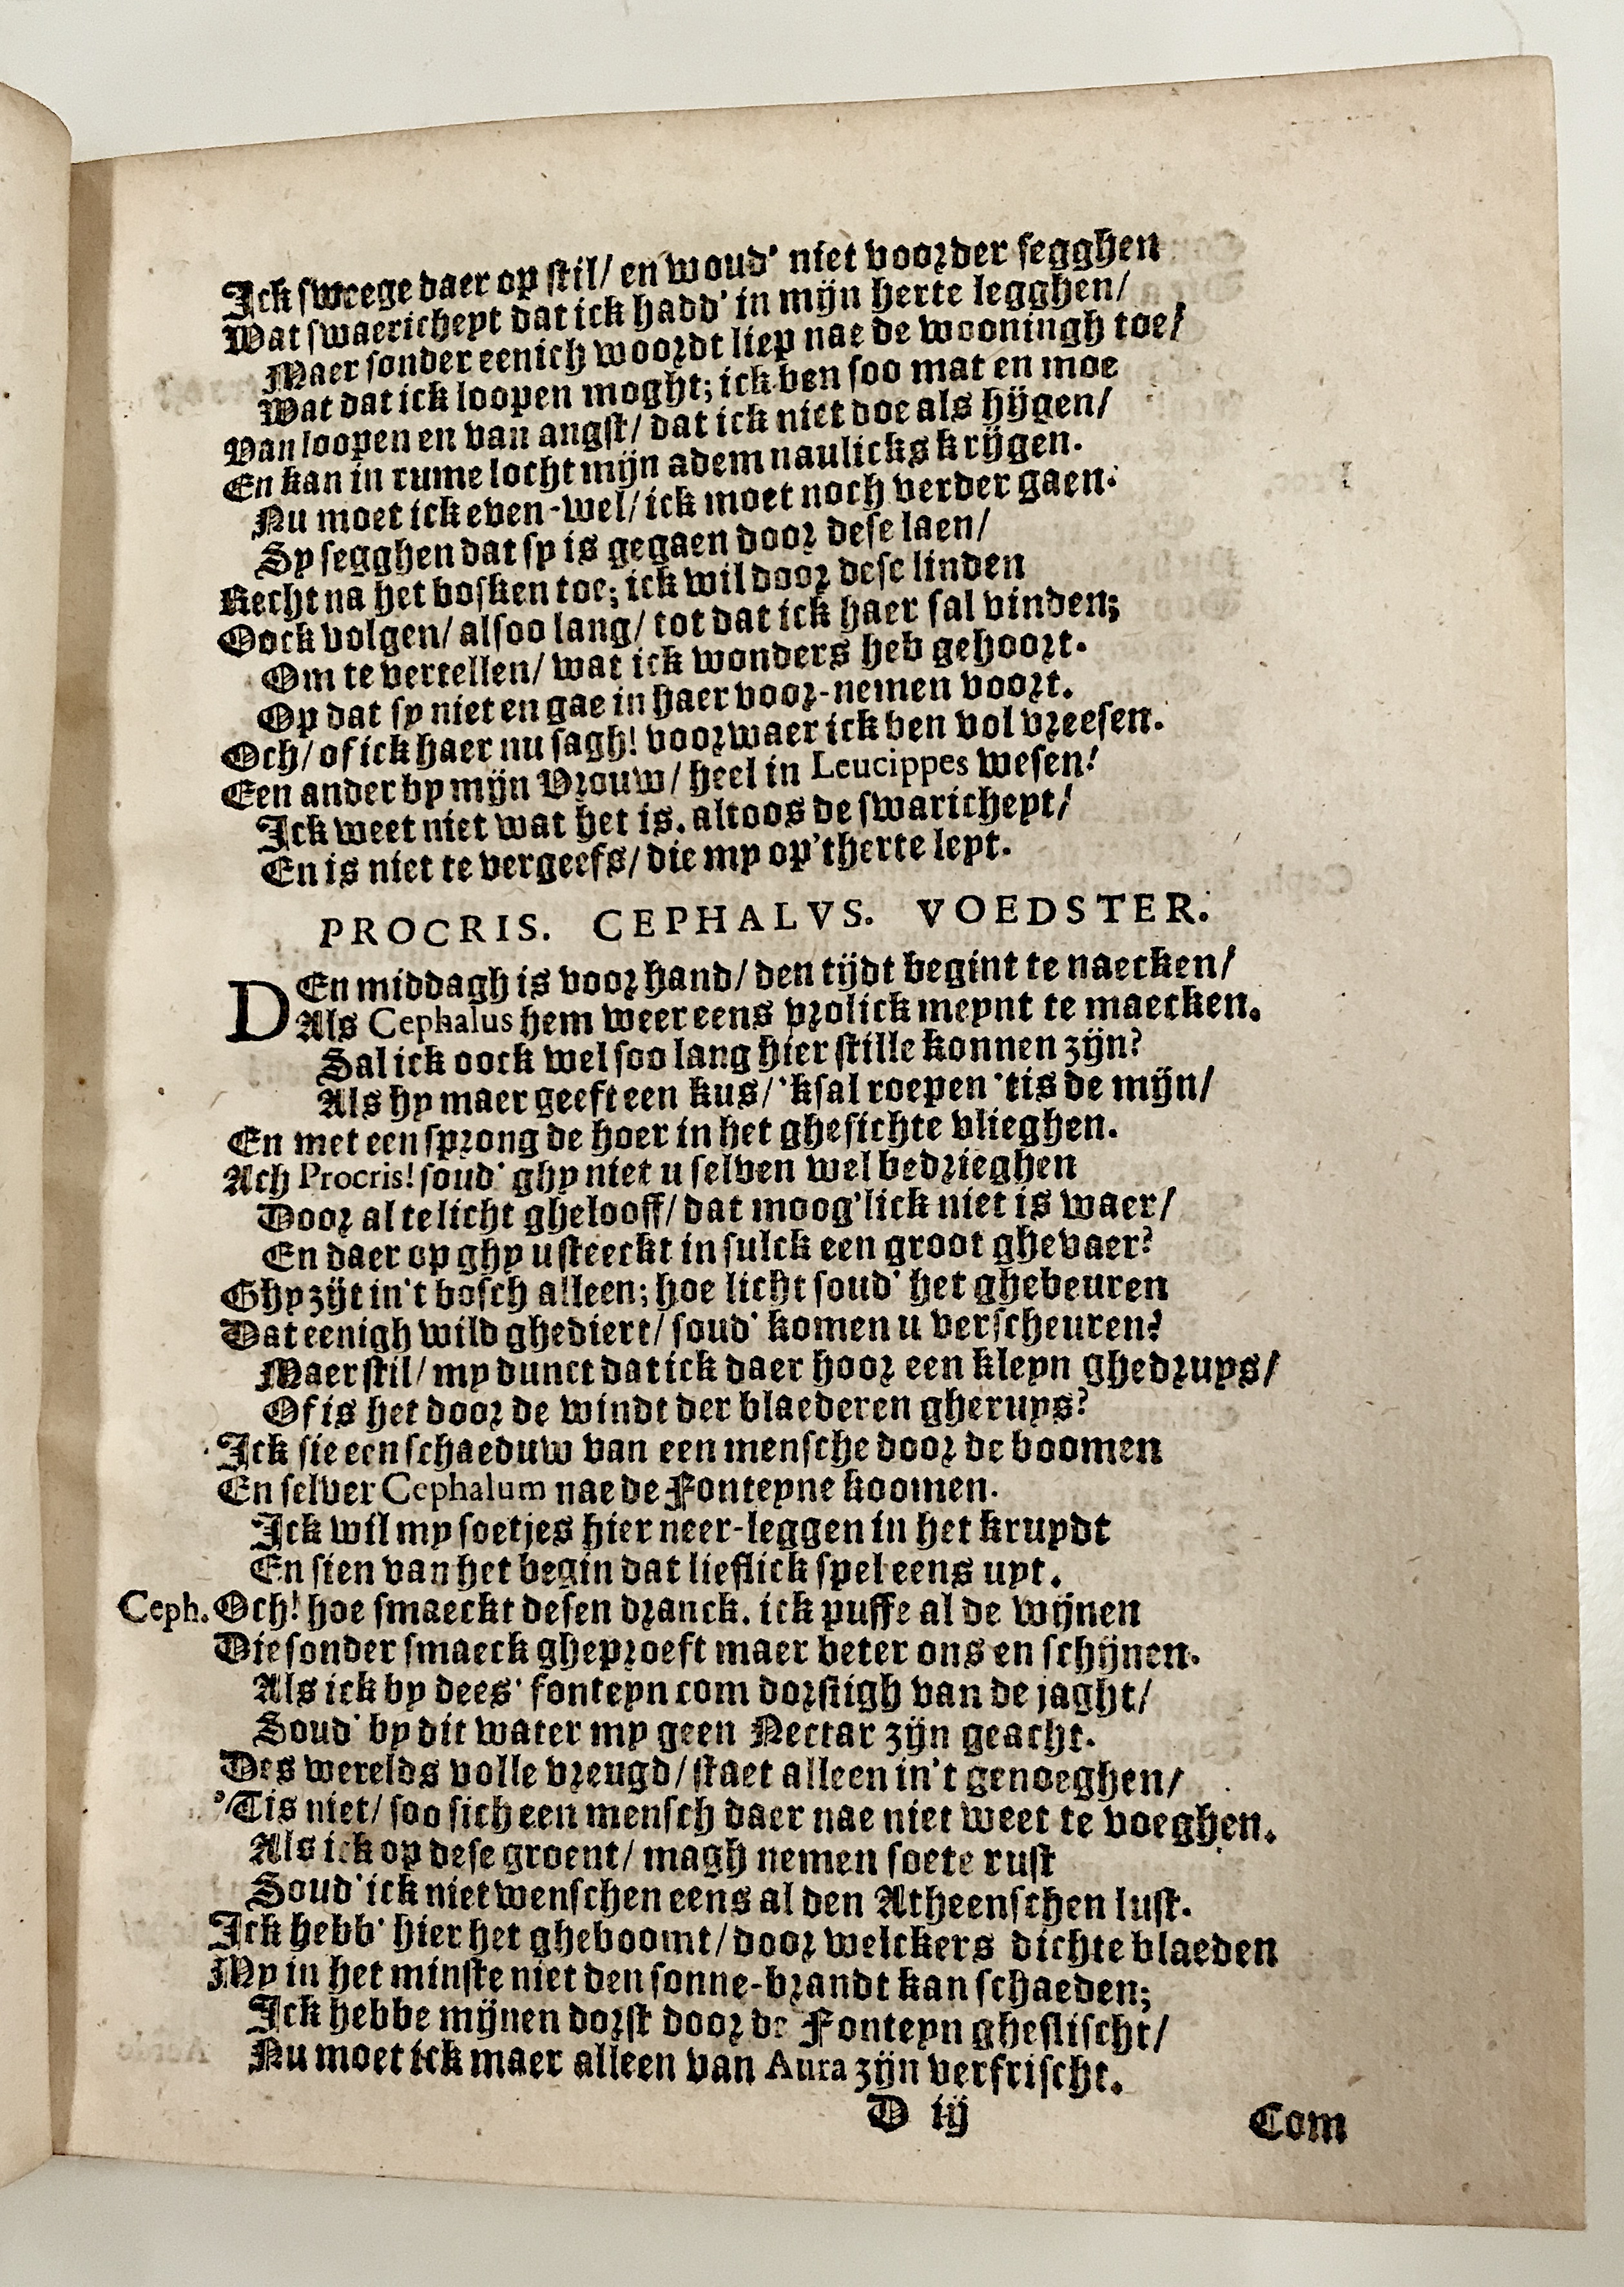 Ick sweege daer op stil/ en woud' niet voorder segghen
Wat swaericheyt dat ick hadd' in mijn herte legghen/
Maer sonder eenich woordt liep nae de wooningh toe/
Wat dat ick loopen moght; ick ben soo mat en moe
Van loopen en van angst/ dat ick niet doe als hijgen/
En kan in rume locht mijn adem naulicks krijgen.
Nu moet ick even-wel/ ick moet noch verder gaen:
Sy segghen dat sy is gegaen door dese laen/
Recht na het bosken toe; ick wil door dese linden
Oock volgen/ alsoo lang/ tot dat ick haer sal vinden;
Om te vertellen/ wat ick wonders heb gehoort.
Op dat sy niet en gae in haer voor-nemen voort.
Och/ of ick haer nu sagh! voorwaer ick ben vol vreesen.
Een ander by mijn Vrouw/ heel in Leucippes wesen!
Ick weet niet wat het is. altoos de swaricheyt/
En is niet te vergeefs/ die my op'therte leyt.
PROCRIS. CEPHALVS. VOEDSTER.
DEn middagh is voor hand/ den tijdt begint te naecken/
Als Cephalus hem weer eens vrolick meynt te maecken.
Sal ick oock wel soo lang hier stille konnen zijn?
Als hy maer geeft een kus/ 'ksal roepen 'tis de mijn/
En met een sprong de hoer in het ghesichte vlieghen.
Ach Procris! soud' ghy niet u selven wel bedrieghen
Door al te licht ghelooff/ dat moog'lick niet is waer/
En daer op ghy u steeckt in sulck een groot ghevaer?
Ghy zijt in't bosch alleen; hoe licht soud' het ghebeuren
Dat eenigh wild ghediert/ soud' komen u verscheuren?
Maer stil/ my dunct dat ick daer hoor een kleyn ghedruys/
Of is het door de windt der blaederen gheruys?
Ick sie een schaeduw van een mensche door de boomen
En selver Cephalum nae de Fonteyne koomen.
Ick wil my soetjes hier neer-leggen in het kruydt
En sien van het begin dat lieflick spel eens uyt.
Ceph. Och! hoe smaeckt desen dranck. ick puffe al de wijnen
Die sonder smaeck gheproeft maer beter ons en schijnen.
Als ick by dees' fonteyn com dorstigh van de jaght/
Soud' by dit water my geen Nectar zijn geacht.
Des werelds volle vreugd/ staet alleen in't genoeghen/
'Tis niet/ soo sich een mensch daer nae niet weet te voeghen.
Als ick op dese groent/ magh nemen soete rust
Soud' ick niet wenschen eens al den Atheenschen lust.
Ick hebb' hier het gheboomt/ door welckers dichte blaeden
My in het minste niet den sonne-brandt kan schaeden;
Ick hebbe mijnen dorst door de Fonteyn gheslischt/
Nu moet ick maer alleen van Aura zijn verfrischt.
D iij
Com